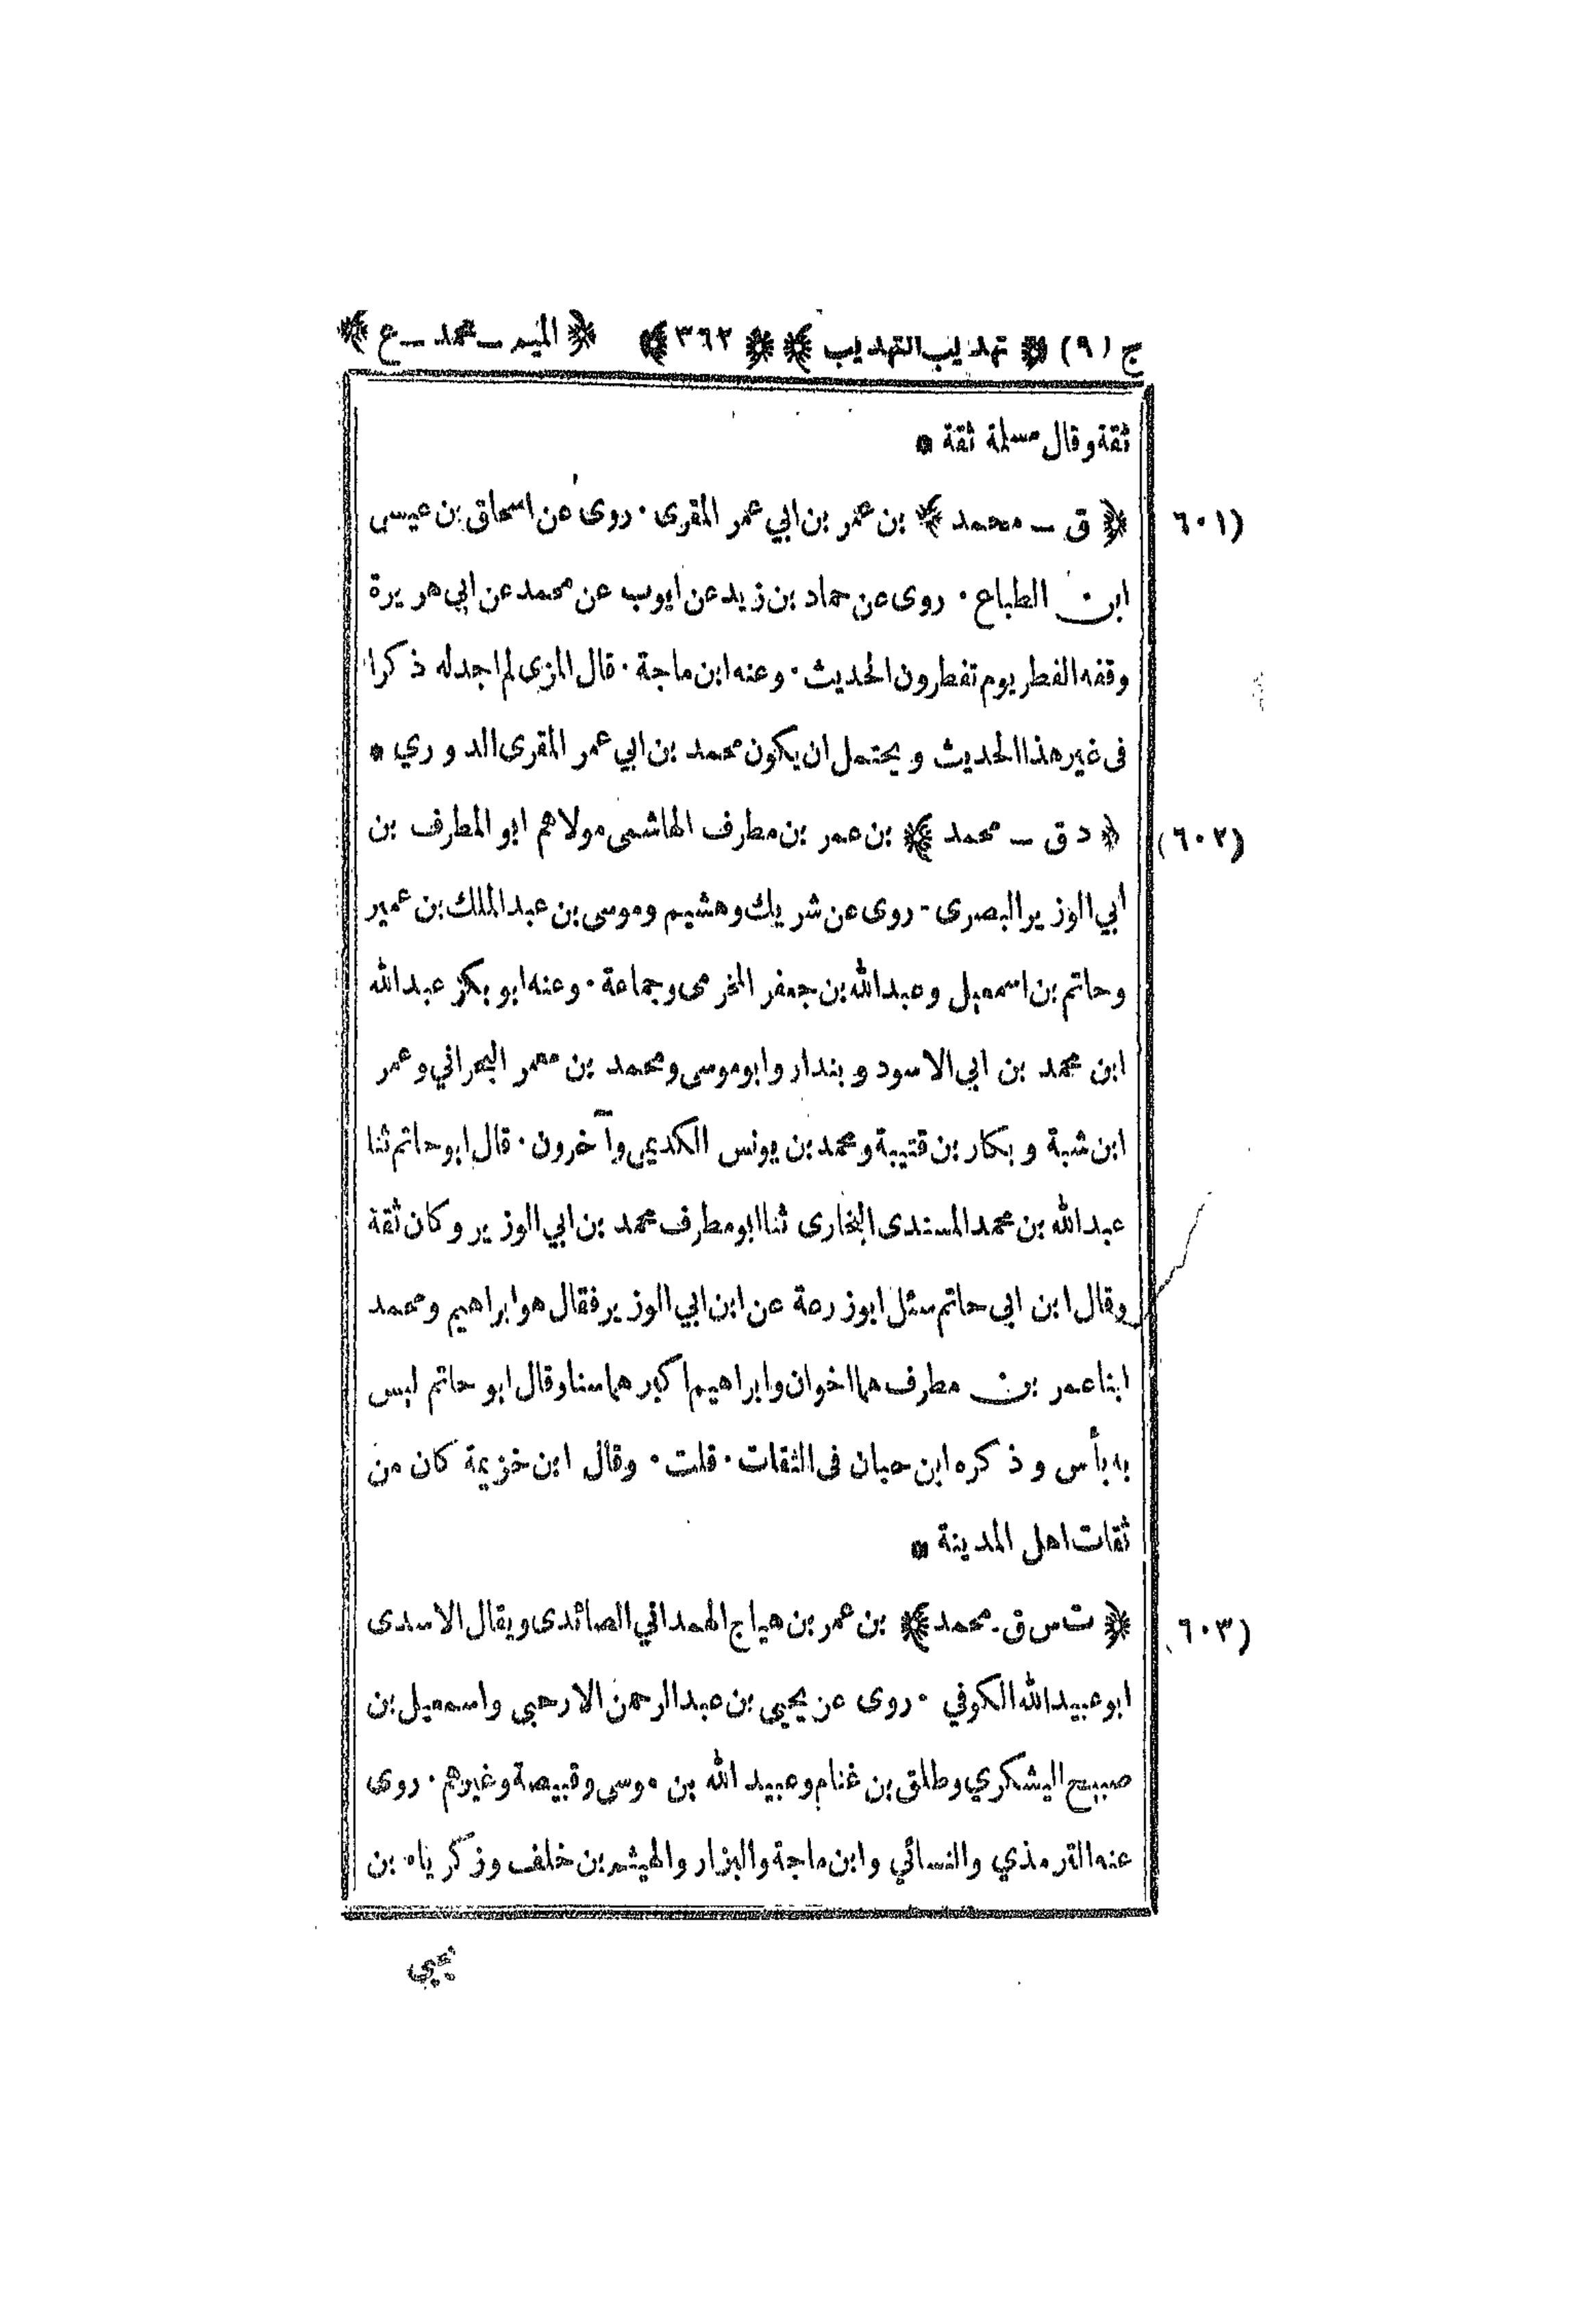 ج (٩) ﴿ تهذيب التهذيب ﴾ ﴿ ٣٦٢ ﴾ ﴿ الميم – محمد – ع ﴾
ثقة وقال مسلمة ثقة *
(٦٠١ ﴿ ق – محمد ﴾ بن عمر بن ابي عمر المقرى . روى عن اسحاق بن عيسى
ابن الطباع . روى عن حماد بن زيد عن ايوب عن محمد عن ابي هريرة
وقفه الفطر يوم تفطرون الحديث . وعنه ابن ماجة . قال المزى لم اجد له ذكرا
فى غير هذا الحديث و يحتمل ان يكون محمد بن ابي عمر المقرى الدوري *
(٦٠٢) ﴿ د ق – محمد ﴾ بن عمر بن مطرف الهاشمى مولاهم ابو المطرف بن
أبي الوزير البصرى - روى عن شريك وهشيم وموسى بن عبد الملك بن عمير
وحاتم بن اسمعيل وعبد الله بن جعفر المخرمى وجماعة . وعنه ابو بكر عبد الله
ابن محمد بن ابي الاسود و بندار وابو موسى ومحمد بن معمر البحراني وعمر
ابن شبة و بكار بن قتيبة ومحمد بن يونس الكديمى وآخرون . قال ابو حاتم ثنا
عبد الله بن محمد المسندى البخارى ثنا ابو مطرف محمد بن ابي الوزير وكان ثقة
وقال ابن ابي حاتم سئل ابو زرعة عن ابن ابي الوزير فقال هو ابراهيم ومحمد
ابنا عمر بن مطرف هما اخوان وابراهيم اكبرهما سنا وقال ابو حاتم ليس
به بأس و ذكره ابن حبان فى الثقات . قلت . وقال ابن خزيمة كان من
ثقات اهل المدينة *
(٦٠٣) ﴿ ت س ق - محمد ﴾ بن عمر بن هياج الهمداني الصائدى ويقال الاسدى
ابو عبيد الله الكوفي . روى عن يحيى بن عبد الرحمن الارحبي واسمعيل بن
صبيح اليشكري وطلق بن غنام وعبيد الله بن موسى وقبيصة وغيرهم . روى
عنه الترمذي والنسائي وابن ماجة والبزار والهيثم بن خلف وزكرياء بن
يحيي